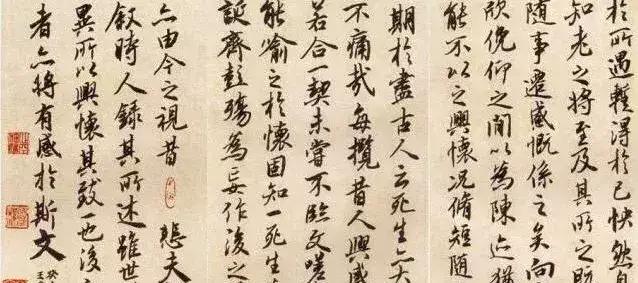 於所遇蹔得於己快然自
知老之將至及其所之既
隨事遷感慨係之矣向
欣俛仰之間以為陳迹猶
能不以之興懷況脩短隨
期於盡古人云死生亦大
不痛哉每攬昔人興感
若合一契未嘗不臨文嗟
能喻之於懷固知一死生
誕齊彭殤為妄作後之
亦由今之視昔 悲夫
叙時人錄其所述雖世
異所以興懷其致一也後
者亦將有感於斯文